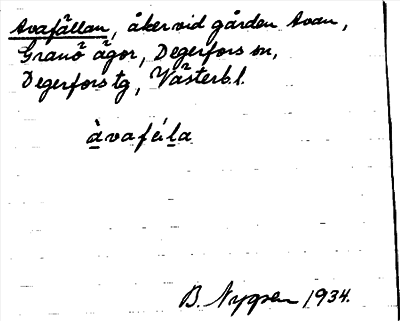 Avafällan, åker vid gården Avan,
Granö ägor, Degerfors sn,
Degerfors tg, Västerb. l.
àvafäla
B. Nygren 1934.